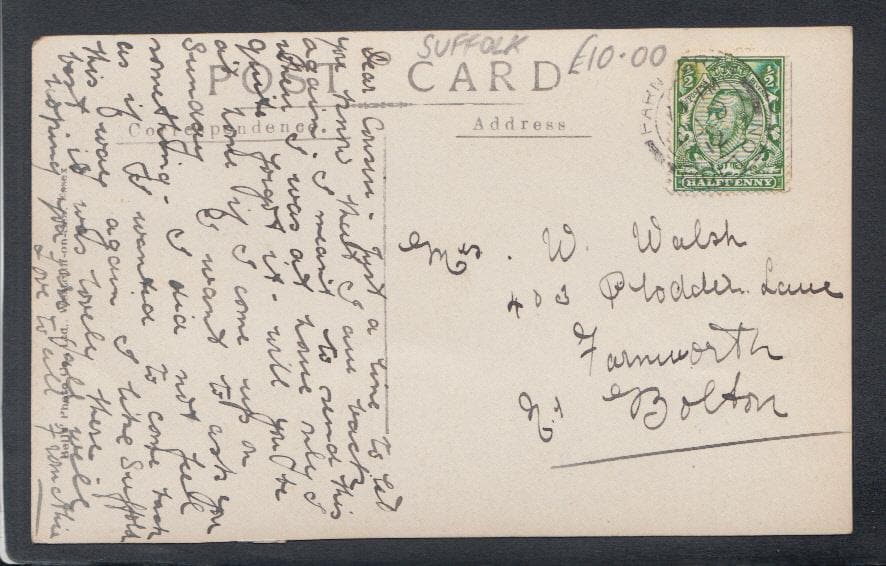 SUFFOLK £10.00
POST CARD
Correspondence. Address
½ ½
POSTAGE REVENUE
HALFPENNY
FARN
Dear Cousin - Just a line to let
you know that I am back
again. I meant to send this
when I was at home only I
quite forgot it - will you be
at home if I come up on
Sunday I want to ask you
something. I did not feel
as if I wanted to come back
this way again I like Suffolk
best it was lovely there.
hoping you are all well
Love to all from
Mrs. W. Walsh
403 Plodder Lane
Farnworth
Nr Bolton